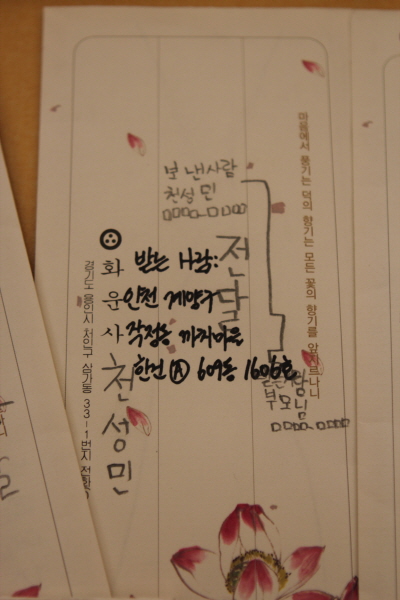 마음에서 풍기는 덕의 향기는 모든 꽃의 향기를 앞지르나니
보낸사람
천성민
전달
받는 사람:
인천 계양구
작전동 까치마을
한진 Ⓐ 609동 1606호
부모님
화운사
경기도 용인시 처인구 삼가동 33-1번지
천성민